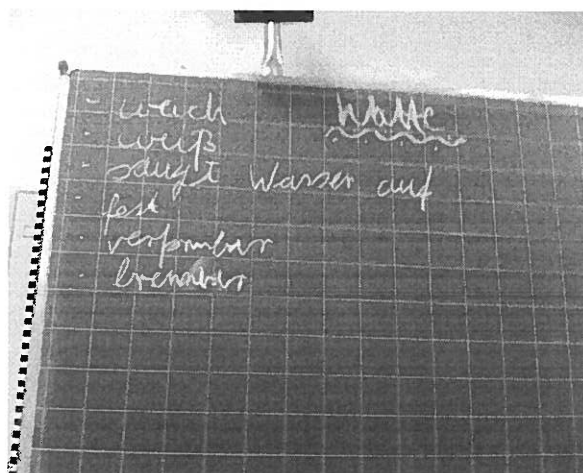 Watte
- weich
- weiß
- saugt Wasser auf
- fest
- verformbar
- brennbar